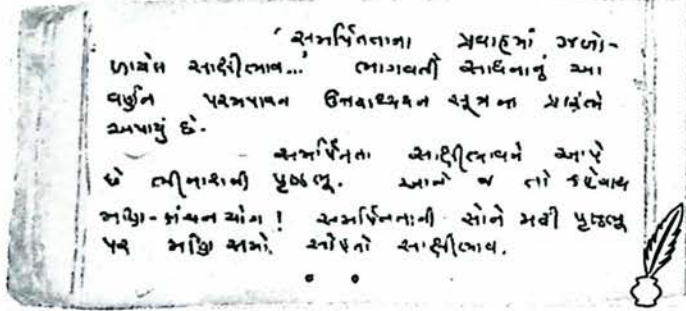 'સમર્પિતતાના પ્રવાહમાં ઝળો-
ળાયેલ સાક્ષીભાવ...' ભાગવતી સાધનાનું આ
વર્ણન પરમપાવન ઉત્તરાધ્યયન સૂત્રના પ્રારંભે
અપાયું છે.
સમર્પિતતા સાક્ષીભાવને આપે
છે ભીનાશની પૃષ્ઠભૂ. આને જ તો કહેવાય
મણિ-કાંચન યોગ! સમર્પિતતાની સોને મઢી પૃષ્ઠભૂ
પર મણિ સમો ઓપતો સાક્ષીભાવ.